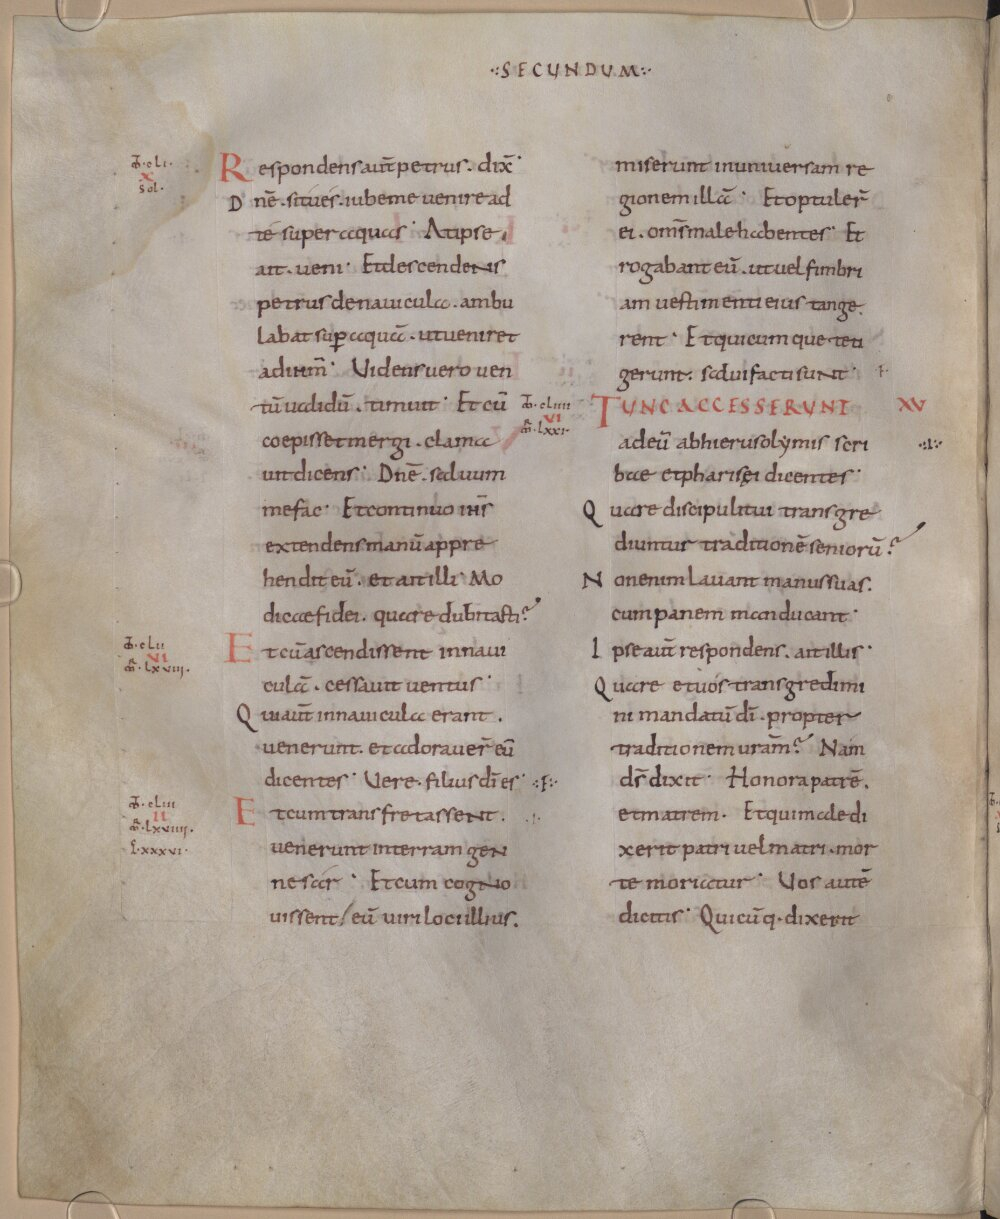 ·:SECUNDUM:·
m̄·cli·
X
Sol·
Respondens aut̄ petrus· dix̄·
Dnē· si tu és· iube me uenire ad
té super aquas· At ipse,
ait· ueni· Et descendens
petrus de nauicula· ambu
labat sup aquā· ut ueniret
ad ihm̄· Uidens uero uen
tū ualidū· timuit· Et cū
coepisset mergi· clama
uit dicens· Dnē· saluum
me fac· Et continuo ihs̄
extendens manū appre
hendit eū· et ait illi· Mo
dicae fidei· quare dubitasti?
m̄·clii
VI
m̄r·lxviii·
Et cū ascendissent in naui
culā· cessauit uentus·
Qui aut̄ in nauicula erant·
uenerunt· et adorauer̄ eū
dicentes· Uere· filius dī es· ·:F:·
m̄·cliii
II
m̄r·lxviiii·
L·xxxvi·
Et cum transfretassent·
uenerunt in terram gen
nesar· Et cum cogno
uissent/ eū uiri loci illius·
miserunt in uniuersam re
gionem illā· Et optuler̄
ei· om̄s male habentes· Et
rogabant eū· ut uel fimbri
am uestimenti eius tange
rent· Et quicumque teti
gerunt· salui facti sunt·
m̄·cliiii
VI
m̄r·lxxi·
TUNC ACCESSERUNT XV
ad eū ab hierusolymis scri
bae et pharisęi dicentes·
Quare discipuli tui transgre
diuntur traditionē seniorū?
Non enim lauant manus suas·
cum panem manducant·
Ipse aut̄ respondens· ait illis·
Quare et uós transgredimi
ni mandatū dī· propter
traditionem uram̄? Nam
ds̄ dixit· Honora patrē·
et matrem· Et qui maledi
xerit patri uel matri· mor
te moriatur· Uos autē
dicitis· Quicūq· dixerit